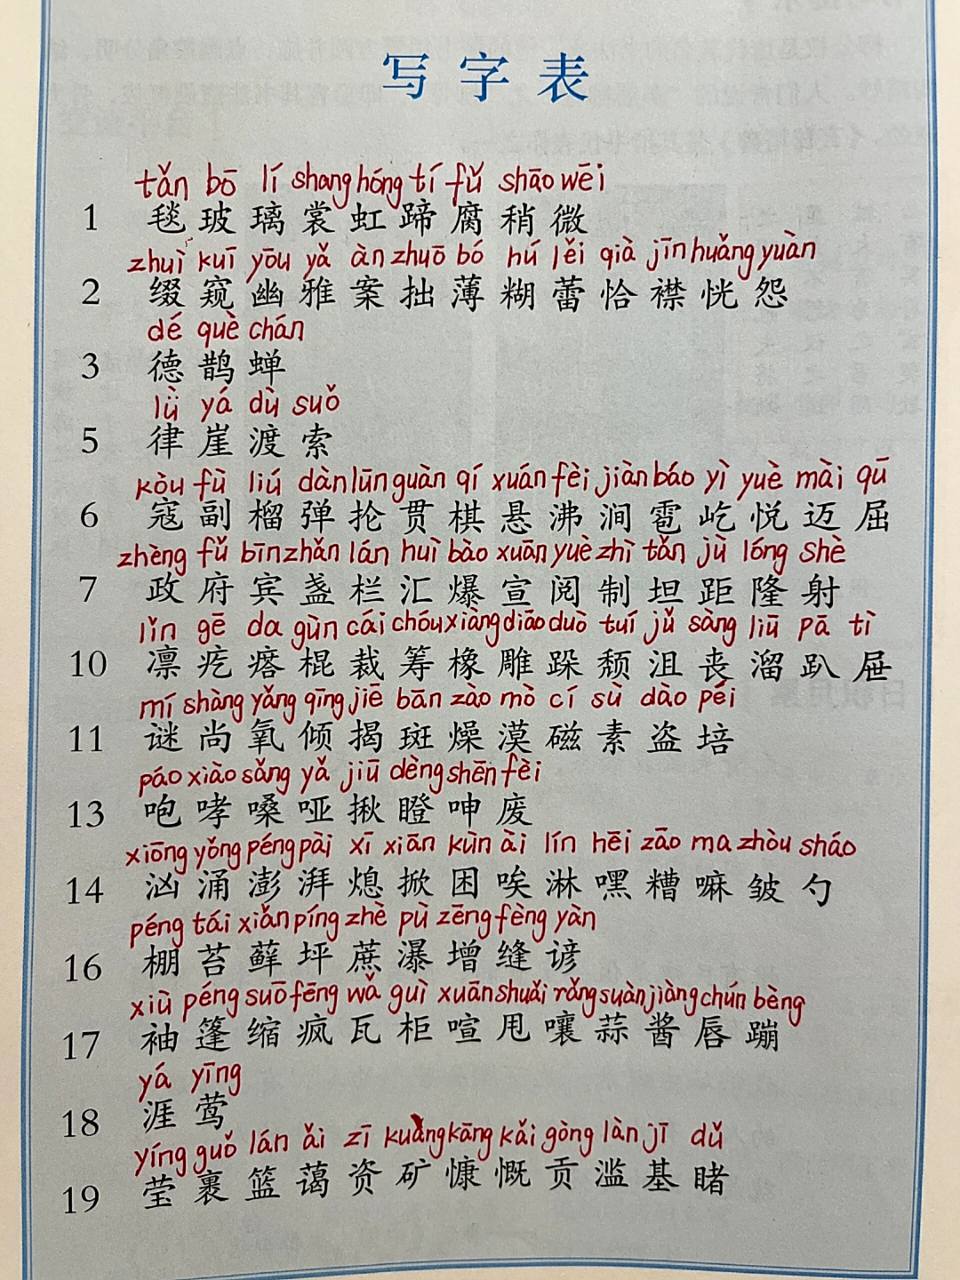 写字表
tǎn bō lí shang hóng tí fǔ shāo wēi
1 毯 玻 璃 裳 虹 蹄 腐 稍 微
zhuì kuī yōu yǎ àn zhuō bó hú lěi qià jīn huǎng yuàn
2 缀 窥 幽 雅 案 拙 薄 糊 蕾 恰 襟 恍 怨
dé què chán
3 德 鹊 蝉
lǜ yá dù suǒ
5 律 崖 渡 索
kòu fù liú dàn lūn guàn qí xuán fèi jiàn báo yì yuè mài qū
6 寇 副 榴 弹 抡 贯 棋 悬 沸 涧 雹 屹 悦 迈 屈
zhèng fǔ bīn zhǎn lán huì bào xuān yuè zhì tǎn jù lóng shè
7 政 府 宾 盏 栏 汇 爆 宣 阅 制 坦 距 隆 射
lǐn gē da gùn cái chóu xiàng diāo duò tuí jǔ sàng liū pā tì
10 凛 疙 瘩 棍 裁 筹 橡 雕 跺 颓 沮 丧 溜 趴 屉
mí shàng yǎng qīng jiē bān zào mò cí sù dào péi
11 谜 尚 氧 倾 揭 斑 燥 漠 磁 素 盗 培
páo xiào sǎng yǎ jiū dèng shēn fèi
13 咆 哮 嗓 哑 揪 瞪 呻 废
xiōng yǒng péng pài xī xiān kùn ài lín hēi zāo ma zhòu sháo
14 汹 涌 澎 湃 熄 掀 困 唉 淋 嘿 糟 嘛 皱 勺
péng tái xiǎn píng zhè pù zēng fèng yàn
16 棚 苔 藓 坪 蔗 瀑 增 缝 谚
xiù péng suō fēng wǎ guì xuān shuǎi rǎng suàn jiàng chún bèng
17 袖 篷 缩 疯 瓦 柜 喧 甩 嚷 蒜 酱 唇 蹦
yá yīng
18 涯 莺
yíng guǒ lán ǎi zī kuàng kāng kǎi gòng làn jī dǔ
19 莹 裹 篮 蔼 资 矿 慷 慨 贡 滥 基 睹